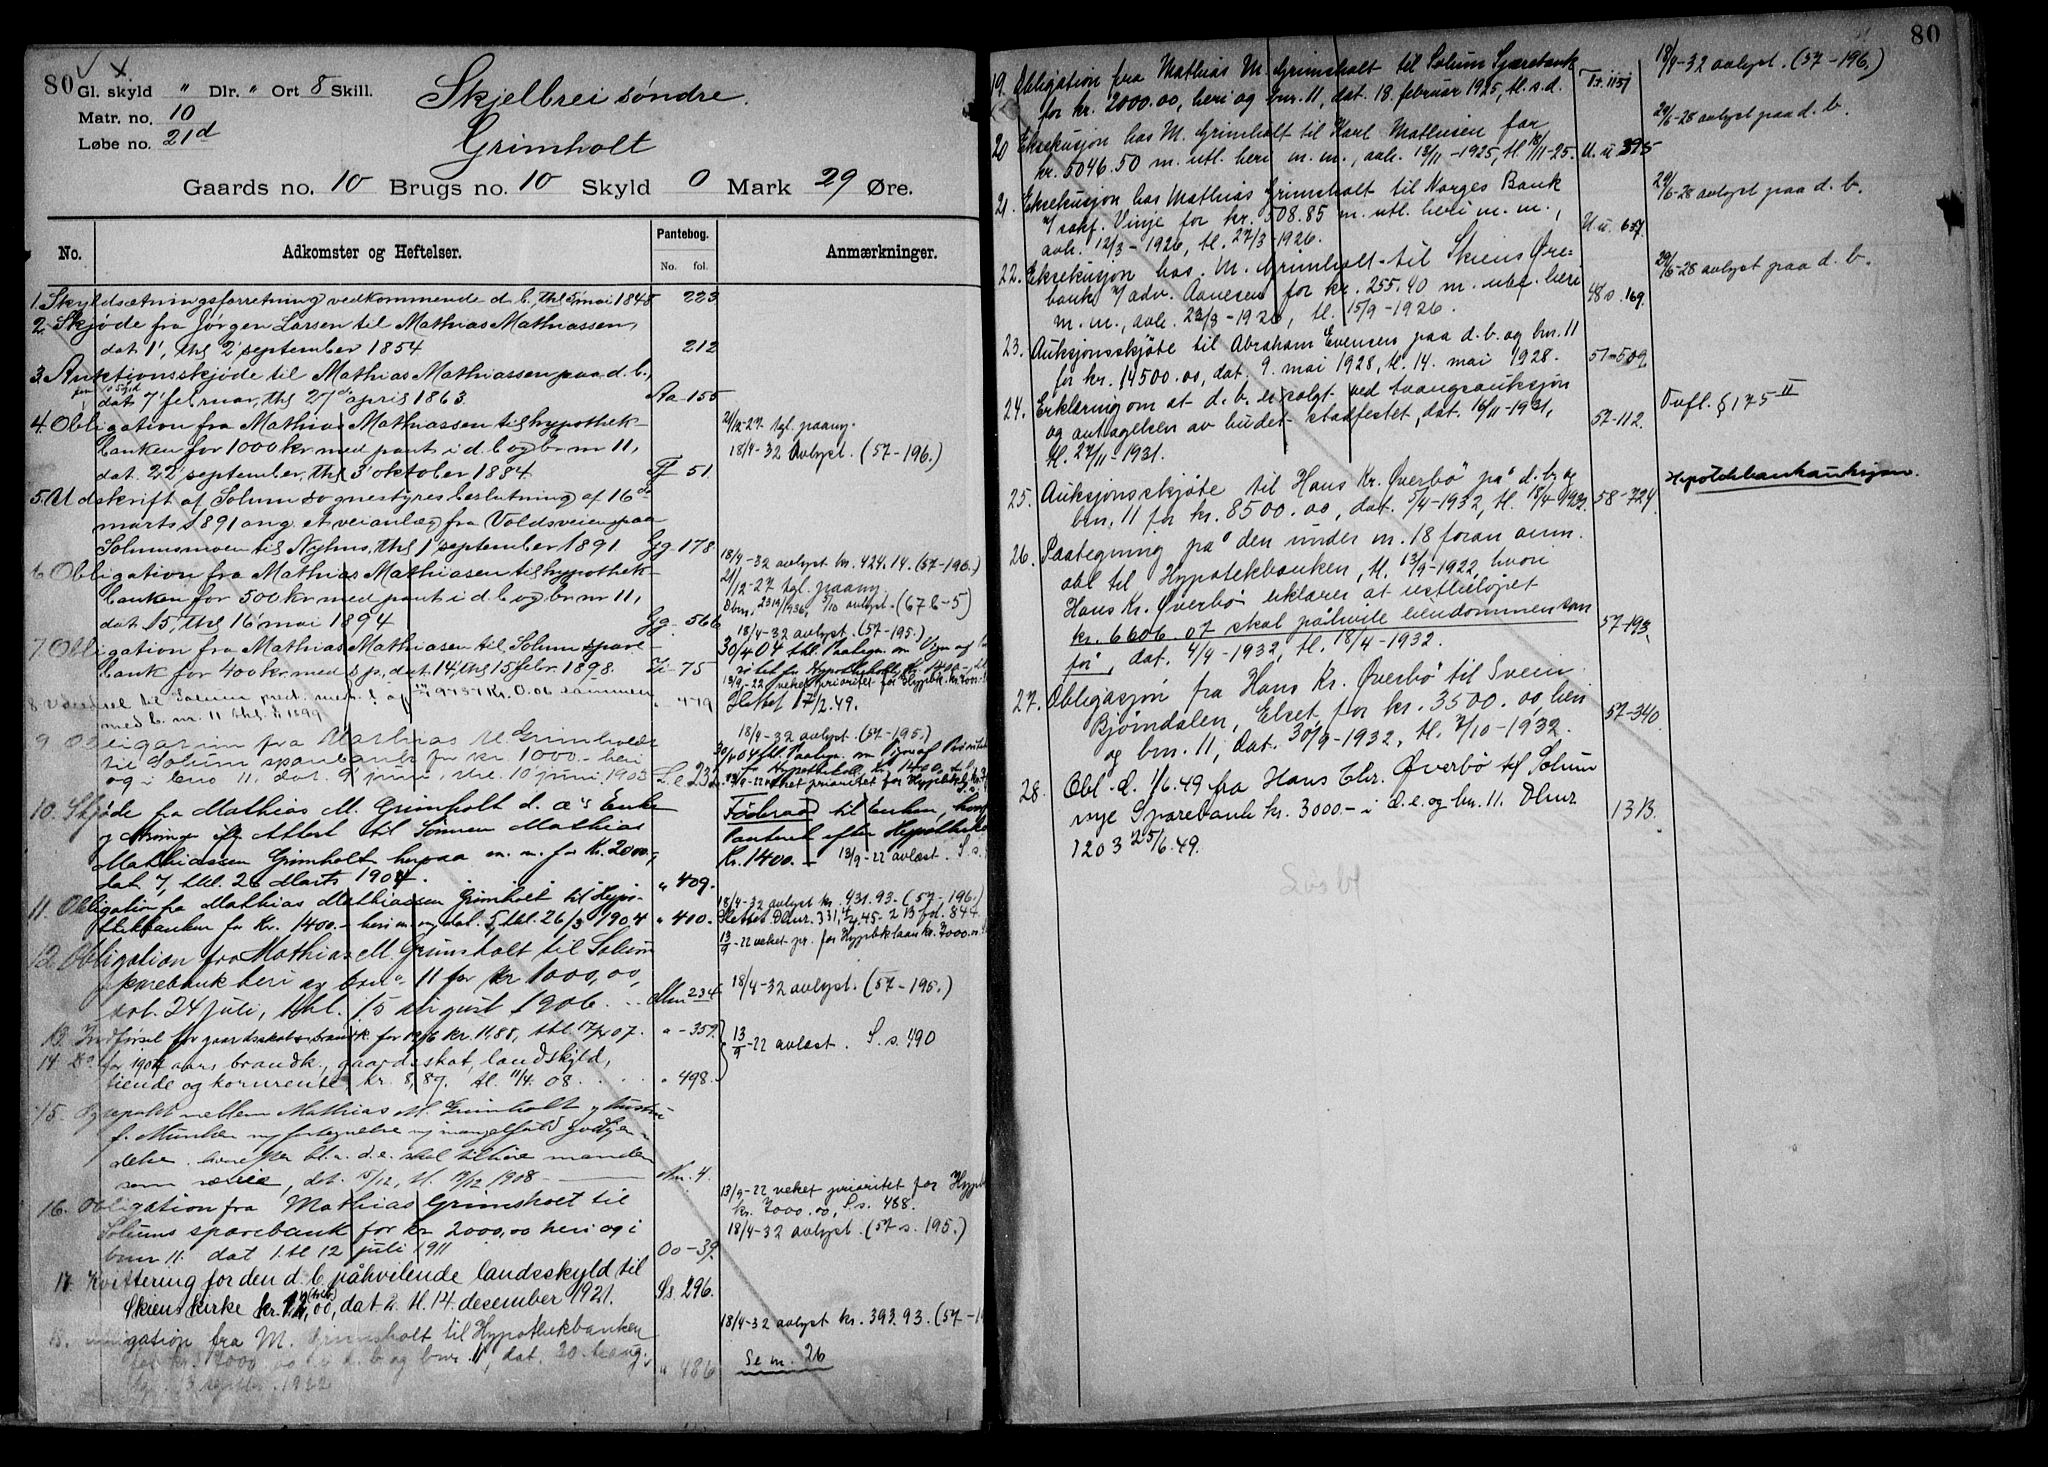 80
Gl. skyld " Dlr. " Ort 8 Skill.
Matr. no. 10
Løbe no. 21d
Skjelbrei søndre.
Grimholt
Gaards no. 10 Brugs no. 10 Skyld 0 Mark 29 Øre.
No. Adkomster og Heftelser. Pantebog. No. fol. Anmærkninger.
1. Skyldsætningsforretning vedkommende d. b. thl mai 1848 223
2. Skjøde fra Jørgen Larsen til Mathias Mathiassen,
dat 1', thl 2' september 1854 212
3. Auktionsskjøde til Mathias Mathiassen paa d. b.,
dat 7' februar, thl 27' april 1863. Aa-155
4. Obligation fra Mathias Mathiassen til hypothek-
banken for 1000 kr med pant i d. b og br nr 11,
dat. 22' september, thl 3' oktober 1884. Ff 51.
21/12-27 tgl. paany.
18/4-32 avlyst. (57-196.)
5. Udskrift af Solum sognestyres beslutning af 16de
marts 1891 ang et veianlæg fra Voldsveien paa
Solumsmoen til Nyhus, thl 1' september 1891. Gg. 178
6. Obligation fra Mathias Mathiasen til hypothek-
banken for 500 kr med pant i d. b og br nr 11,
dat 15', thl 16' mai 1894 Gg. 566
18/4-32 avlyst kr. 424.14. (57-196.)
21/12-27 tgl. paany.
avlyst. (67b-5)
7. Obligation fra Mathias Mathiasen til Solum spare-
bank for 400 kr. med s p., dat. 14', thl 15' febr. 1898. 75
18/4-32 avlyst. (57-195.)
13/9-22 veket prioritet for Hypbk.
Slettet 17/2.49.
8. til Solum
med b. nr. 11 thl 1899 " 479
9. Obligation fra Mathias M. Grimholt
til Solum sparebank for kr. 1000.- heri
og i bno 11, dat. 9' juni, thl. 10 juni 1903 L.e 232
18/4-32 avlyst. (57-195.)
13/9-22 veket prioritet for Hypbk
10. Skjøde fra Mathias M. Grimholt d. æ's Enke
til Sønnen Mathias
Mathiassen Grimholt herpaa m. m. for Kr. 2000.-,
dat 7, thl. 26 Marts 1904. " 409.
Føderaad til Enken,
Panteret efter Hypotheks
Kr. 1400.- 13/9-22 avlæst. S. s.
11. Obligation fra Mathias Mathiassen Grimholt til Hypo-
thekbanken for Kr. 1400.- heri m. m, dat. 5, thl. 26/3 1904 " 410.
18/4-32 avlyst kr. 431.93. (57-196.)
Slettet Dbnr. 331, 45- 213 fol. 844.
13/9-22 veket pr. for Hypbklaan kr. 7000.
12. Obligation fra Mathias M. Grimsholt til Solum
sparebank heri og br.nr. 11 for kr 1000,00,
dat. 24 juli, thl. 15 august 1906. Mm 234
18/4-32 avlyst. (57-195.)
13. Indførsel for gaardsskat brandk. for 1906 kr. 11.88, thl. 07. " -359.
14. Do for 1907 aars brandk., gaardsskat, landskyld,
tiende og kornrente kr. 8.89. tl. 11/4. 08. " 498.
13/9-22 avlæst. S. s. 490
15. Ægtepakt mellem Mathias M. Grimholt
som særeie, dat. 5/12, tl. 1908 Nn. 4.
16. Obligation fra Mathias Grimsholt til
Solums sparebank for kr 2000,00 heri og i
bnr 11. dat 1. tl 12 juli 1911 Oo-39.
13/9-22 veket prioritet for Hypb
kr. 7000.00, S.s. 488.
18/4-32 avlyst. (57 s. 195.)
17. Kvittering for den d. b. påhvilende landsskyld til
Skiens kirke kr. 12,00, dat 2. tl. 14. december 1921. Ss. 296.
18. Obligation fra M. Grimsholt til Hypothekbanken
for kr. 7000.00 i d. b og bnr. 11, dat. 20. aug.
13 septbr. 1922 " 486
18/4-32 avlyst kr. 393.93. (57-1
Se nr. 26
80
19. Obligation fra Mathias M. Grimsholt til Solum Sparebank
for kr. 2000.00, heri og bnr. 11, dat. 18. februar 1925, tl. s.d. Tt 1151
18/4-32 avlyst. (57-196.)
20 Eksekusjon hos M. Grimholt til Karl Mathisen for
kr. 5046.50 m. utl. heri m. m., avh. 13/11-1925, tl. 18/11-25. U.u 395
29/6-28 avlyst paa d. b.
21. Eksekusjon hos Mathias Grimsholt til Norges Bank
v/ sakf. Vinje for kr. 508.85 m. utl. heri m. m.,
avh. 12/3-1926, tl. 27/3-1926. U.u. 637.
29/6-28 avlyst paa d. b.
22. Eksekusjon hos M. Grimholt til Skiens Øre-
bank v/ adv. Aanesen for kr. 255.40 m. utl. heri
m. m., avh. 23/8-1926, tl. 15/9-1926. 48 s. 169.
29/6-28 avlyst paa d. b.
23. Auksjonsskjøte til Abraham Evensen paa d. b. og bnr. 11
for kr. 14500.00, dat. 9. mai 1928, tl. 14. mai 1928. 51-509.
24. Erklæring om at d. b. er solgt ved tvangsauksjon
og antagelsen av budet stadfestet, dat. 16/11-1931,
tl. 27/11-1931. 57-112.
Tvfl. § 175 II
25. Auksjonsskjøte til Hans Kr. Øverbö på d. b. og
bnr. 11 for kr. 8500.00, dat. 5/4-1932, tl. 18/4-1932. 58-724.
Hypotekbankauksjon.
26. Paategning på den under nr. 18 foran anm.
obl til Hypotekbanken, tl. 13/9-1922, hvori
Hans Kr. Øverbö erklærer at restbeløpet
kr. 6606.07 skal påhvile eiendommen som
før, dat. 4/4-1932, tl. 18/4-1932. 57-193.
27. Obligasjon fra Hans Kr. Øverbö til Svein
Bjørndalen, Elset, for kr. 3500.00, heri
og bnr. 11, dat. 30/9-1932, tl. 7/10-1932. 57-340.
28. Obl. d. 1/6.49 fra Hans Chr. Øverbö til Solum
nye Sparebank kr. 3000.- i d. e. og bnr. 11. Dbnr
1203 25/6.49. 1313.